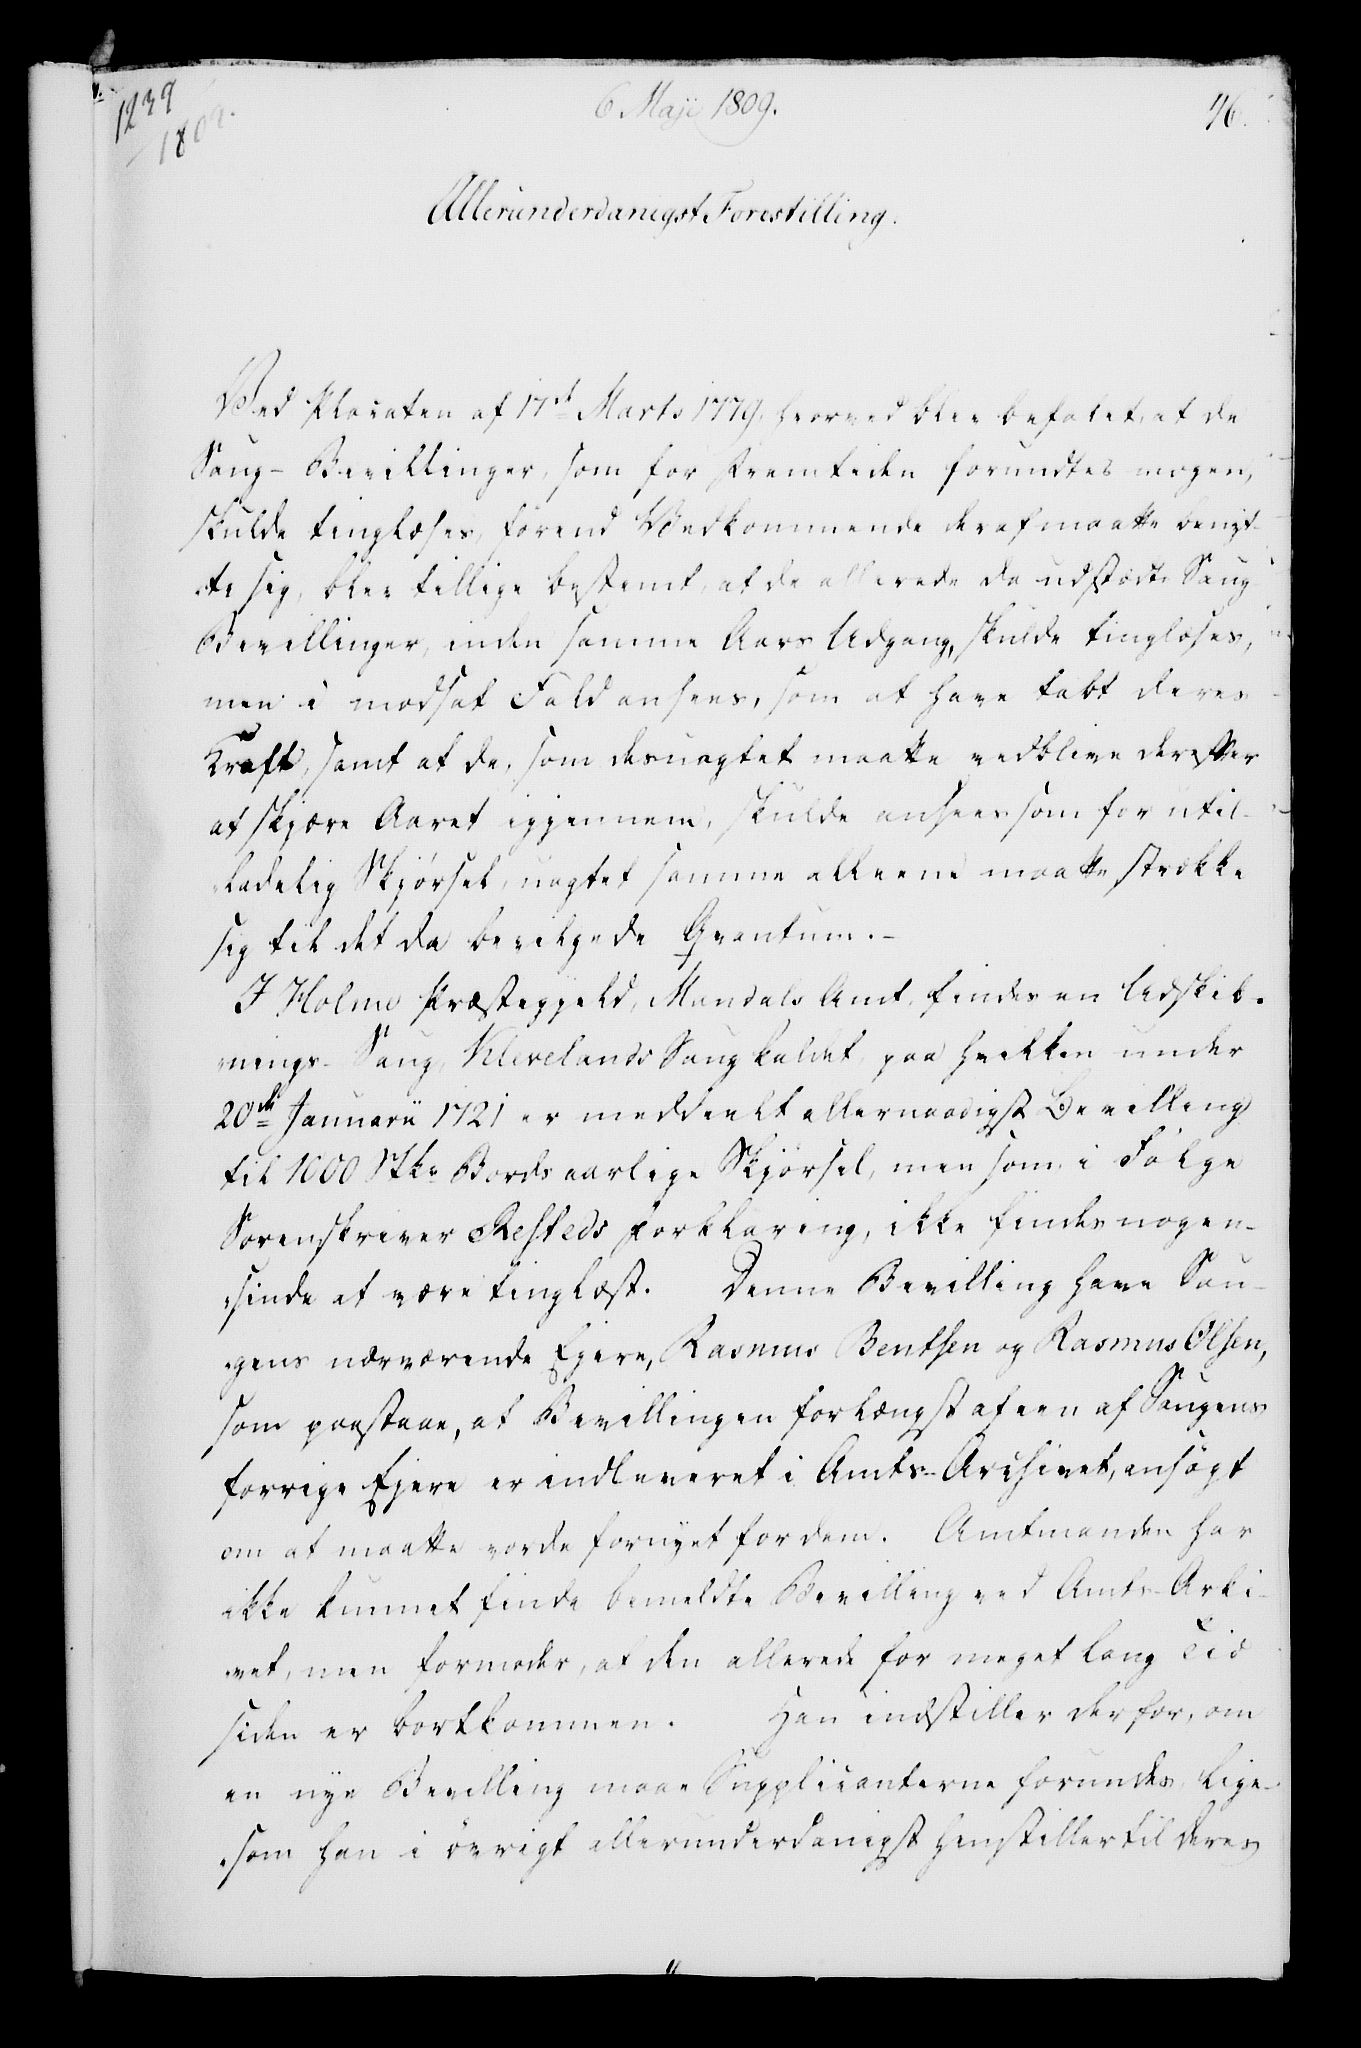 1239
1809.
6 Maji 1809.
46.
Allerunderdanigst Forestilling.
Ved Placaten af 17de Marts 1779, hvorved blev befalet, at de
Saug-Bevillinger, som for Fremtiden forundtes nogen,
skulde tinglæses, førend Vedkommende deraf maatte benyt-
te sig, blev tillige bestemt, at de allerede da udstædte Saug
Bevillinger, inden samme Aars Udgang, skulde tinglæses,
men i modsat Fald ansees, som at have tabt deres
Kraft, samt at de, som desuagtet maatte vedblive derefter
at skjære Aaret igjennem, skulde ansees som for util-
ladelig Skjørsel, uagtet samme alleene maatte strække
sig til det da bevilgede Qvantum.-
I Holme Præstegjeld, Mandals Amt, findes en Udskib-
nings-Saug, Klevelands Saug kaldet, paa hvilken under
20de Januarii 1721 er meddeelt allernaadigst Bevilling
til 1000 Stkr Bords aarlige Skjørsel, men som i Følge
Sorenskriver Resteds Forklaring, ikke findes nogen-
sinde at være tinglæst. Denne Bevilling have Sau-
gens nærværende Ejere, Rasmus Bentsen og Rasmus Olsen,
som paastaae, at Bevillingen forlængst af een af Saugens
forrige Ejere er indleveret i Amts-Archivet, ansøgt
om at maatte vorde fornyet for dem. Amtmanden har
ikke kunnet finde bemeldte Bevilling ved Amts-Arki-
vet, men formoder, at den allerede for meget lang Tid
siden er bortkommen. Han indstiller derfor, om
en nye Bevilling maae Supplicanterne forundes, lige-
som han i øvrigt allerunderdanigst henstiller til Deres